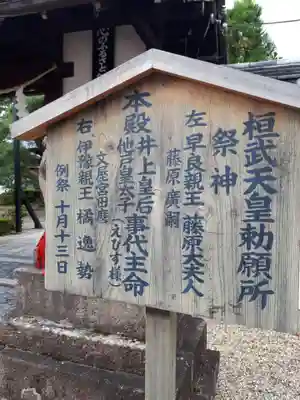 桓武天皇勅願所
祭神
左 早良親王 藤原大夫人
藤原廣嗣
本殿 井上皇后 事代主命
他戸皇太子 (えびす様)
文屋宮田麿
右 伊豫親王 橘逸勢
例祭 十月十三日
心のふるさと